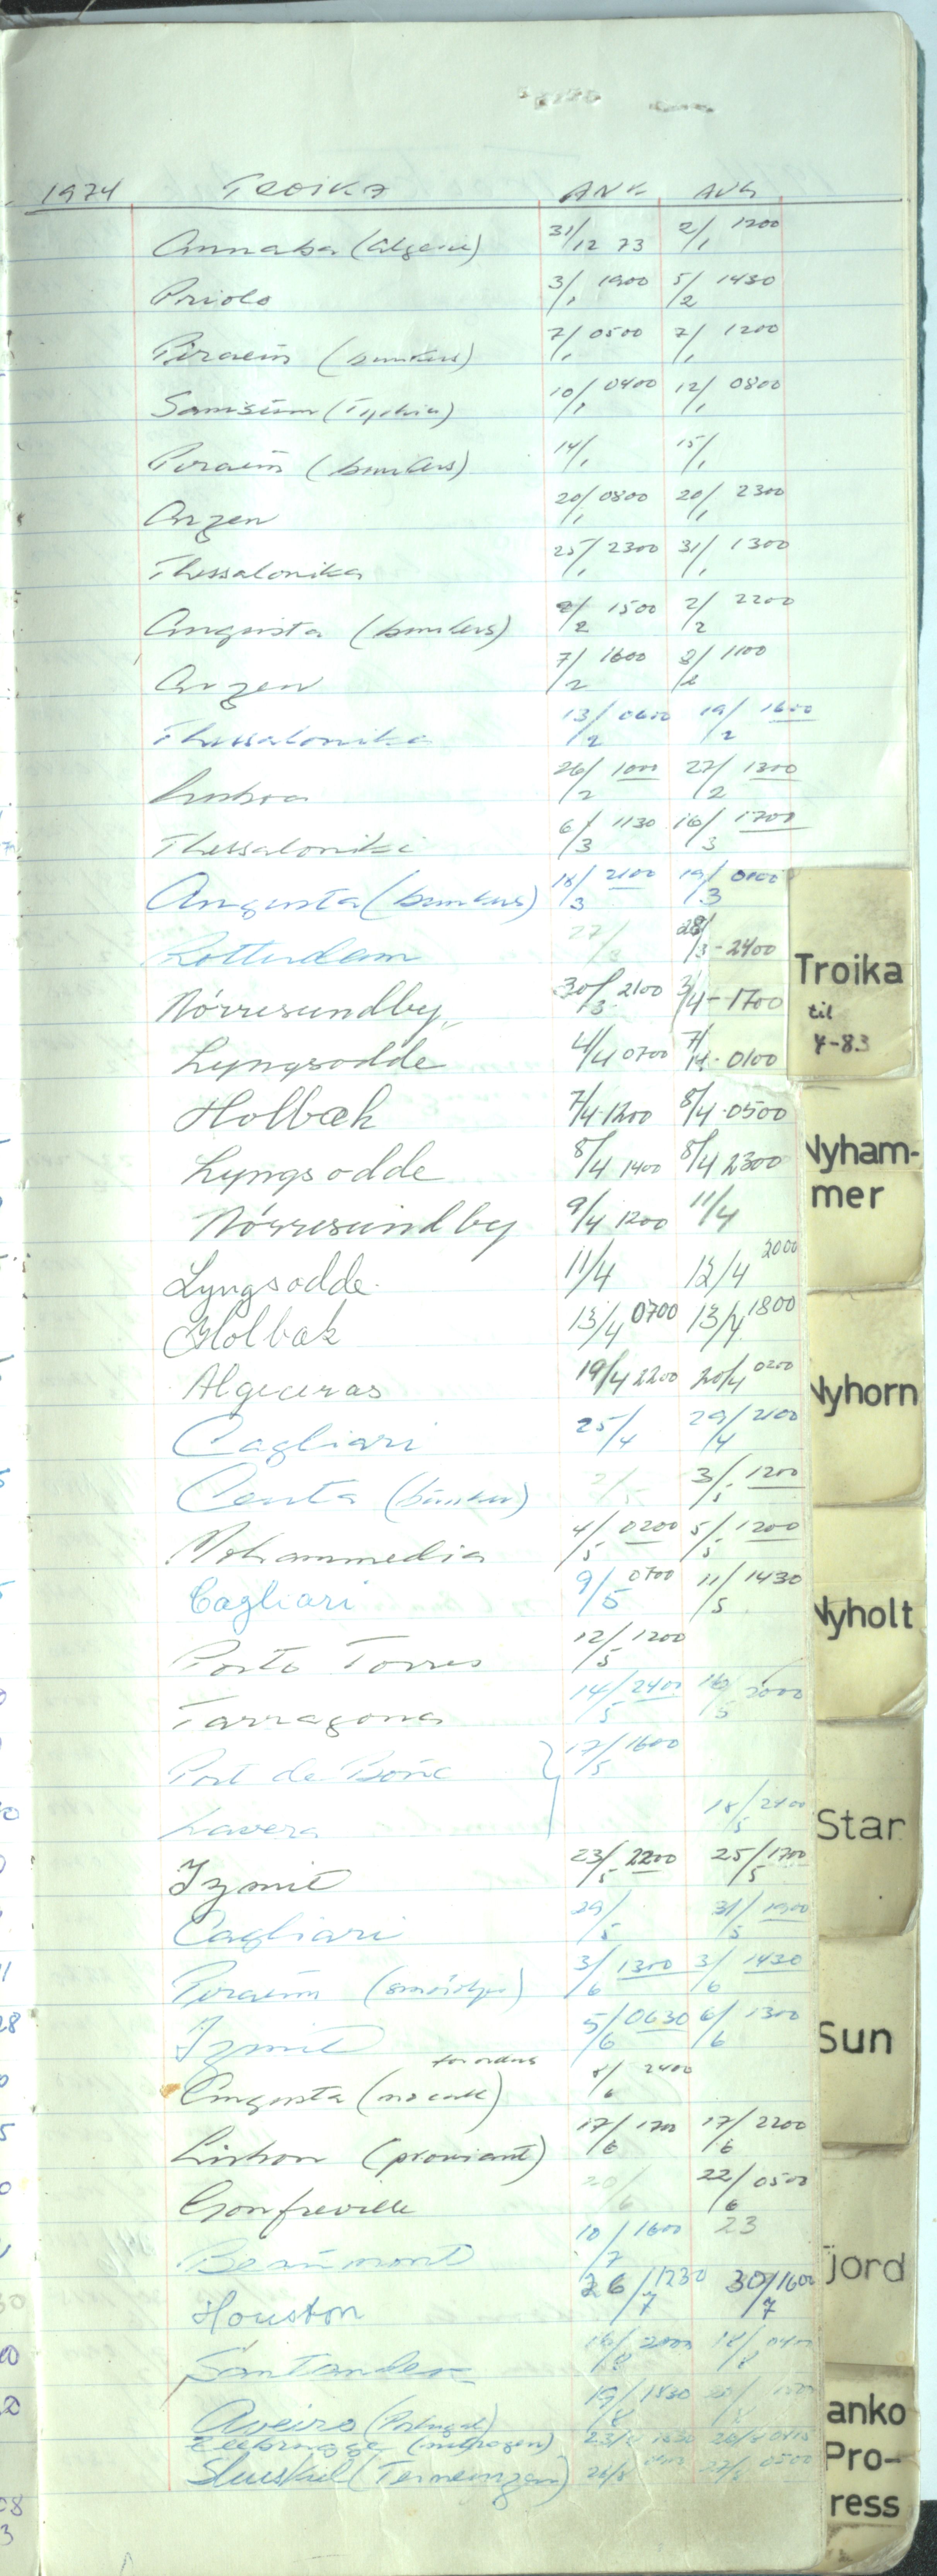 1974 TROIKA ANK AVG
Annaba (Algerie) 31/12 73 2/1 1200
Priolo 3/1 1900 5/2 1430
Piraeus (bunkers) 7/1 0500 7/1 1200
Samsun (Tyrkia) 10/1 0400 12/1 0800
Piraeus (bunkers) 14/1 15/1
Arzew 20/1 0800 20/1 2300
Thessalonika 25/1 2300 31/1 1300
Augusta (bunkers) 2/2 1500 2/2 2200
Arzew 7/2 1600 8/2 1100
Thessalonika 13/2 0600 19/2 1600
Lisboa 26/2 1000 27/2 1300
Thessaloniki 6/3 1130 16/3 1700
Augusta (bunkers) 18/3 2100 19/3 0100
Rotterdam 27/3 28/3 - 2400
Nörresundby 30/3 2100 3/4 - 1700
Lyngsodde 4/4 0700 7/4 - 0100
Holbæk 7/4 - 1200 8/4 - 0500
Lyngsodde 8/4 1400 8/4 2300
Nörresundby 9/4 1200 11/4
Lyngsodde 11/4 12/4 2000
Holbæk 13/4 0700 13/4 1800
Algeceras 19/4 2200 20/4 0200
Cagliari 25/4 29/4 2100
Ceuta (bunker) 2/5 3/5 1200
Mohammedia 4/5 0200 5/5 1200
Cagliari 9/5 0700 11/5 1430
Porto Torres 12/5 1200
Tarragona 14/5 2400 16/5 2000
Port de Bouc 17/5 1600
Lavera 18/5 2100
Izmit 23/5 2200 25/5 1700
Cagliari 29/5 31/5 1900
Piraeus 3/6 1300 3/6 1430
Izmit 5/6 0630 6/6 1300
for orders
Augusta (no call) 8/6 2400
Lisbon (proviant) 17/6 1700 17/6 2200
Gonfreville 20/6 22/6 0500
23
Beaumont 10/7 1600
Houston 26/7 1230 30/7 1600
Santander 16/8 2000 18/8
Aveiro (Portugal) 19/8 1830
Zeebrugge 23/8
Sluiskil (Terneuzen) 26/8 27/8 0500
Troika
til
4-83
Nyham-
mer
Nyhorn
Nyholt
Star
Sun
Fjord
anko
Pro-
ress